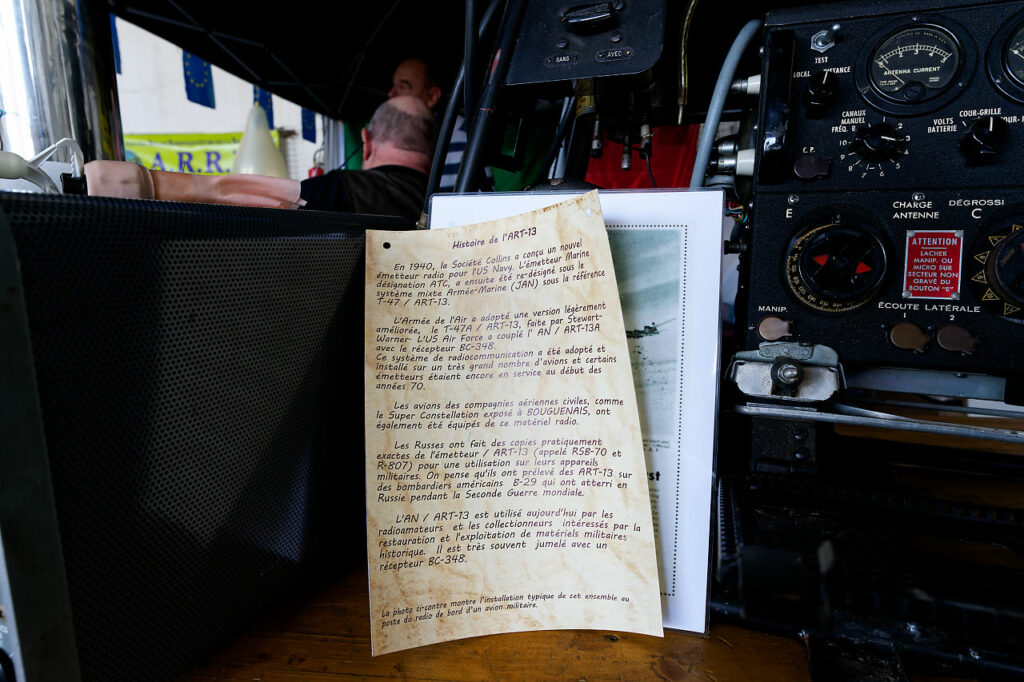 SANS
AVEC
A.R.R.
TEST
LOCAL DISTANCE
ANTENNA CURRENT
CANAUX
MANUEL
FRÉQ.
8 9 10 11 1 2 3 4 5 6 7
VOLTS
BATTERIE
COUR-GRILLE
C.P.
E
CHARGE
ANTENNE
DÉGROSSI
C
ATTENTION
LACHER
MANIP. OU
MICRO SUR
SECTEUR NON
GRAVÉ DU
BOUTON "E"
MANIP.
ÉCOUTE LATÉRALE
1 2
Histoire de l'ART-13
En 1940, la Société Collins a conçu un nouvel
émetteur radio pour l'US Navy. L'émetteur Marine
désignation ATC, a ensuite été re-désigné sous le
système mixte Armée-Marine (JAN) sous la référence
T-47 / ART-13.
L'Armée de l'Air a adopté une version légèrement
améliorée, le T-47A / ART-13, faite par Stewart-
Warner- L'US Air Force a couplé l' AN / ART-13A
avec le récepteur BC-348.
Ce système de radiocommunication a été adopté et
installé sur un très grand nombre d'avions et certains
émetteurs étaient encore en service au début des
années 70.
Les avions des compagnies aériennes civiles, comme
le Super Constellation exposé à BOUGUENAIS, ont
également été équipés de ce matériel radio.
Les Russes ont fait des copies pratiquement
exactes de l'émetteur / ART-13 (appelé RSB-70 et
R-807) pour une utilisation sur leurs appareils
militaires. On pense qu'ils ont prélevé des ART-13 sur
des bombardiers américains B-29 qui ont atterri en
Russie pendant la Seconde Guerre mondiale.
L'AN / ART-13 est utilisé aujourd'hui par les
radioamateurs et les collectionneurs intéressés par la
restauration et l'exploitation de matériels militaires
historique. Il est très souvent jumelé avec un
récepteur BC-348.
La photo ci-contre montre l'installation typique de cet ensemble au
poste du radio de bord d'un avion militaire.